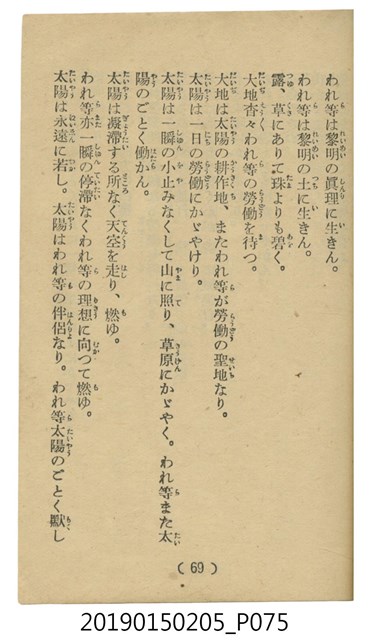 われ等は黎明の眞理に生きん。
われ等は黎明の土に生きん。
露、草にありて珠よりも碧く。
大地杳々われ等の勞働を待つ。
大地は太陽の耕作地、またわれ等が勞働の聖地なり。
太陽は一日の勞働にかゞやけり。
太陽は一瞬の小止みなくして山に照り、草原にかゞやく。われ等また太
陽のごとく働かん。
太陽は凝滯する所なく天空を走り、燃ゆ。
われ等亦一瞬の停滯なくわれ等の理想に向つて燃ゆ。
太陽は永遠に若し。太陽はわれ等の伴侶なり。われ等太陽のごとく默し
(69)
20190150205_P075